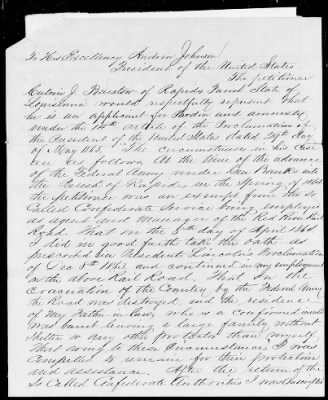 To His Excellency Andrew Johnson
President of the United States
The petitioner
J. Barstow of Rapides Parish State of
Louisiana would respectfully represent that
he is an applicant for Pardon and amnesty
under the article of the Proclamation of
the President of the United States dated 29th day
of May 1865. The circumstances in his case
are as follows. At the time of the advance
of the Federal Army under Gen Banks into
the Parish of Rapides in the Spring of
the petitioner was an exempt from the so
called Confederate Service from employee
as agent and Manager of the Red River Rail
Road. That on the 5th day of April 1864
I did in good faith take the oath as
prescribed in President Lincoln's Proclamation
of Dec 8th 1863 and continued in my employment
on the above Rail Road. That in the
Evacuation of the Country by the Federal Army
the Road was destroyed and the residence
of my Father in law, who is a confirmed
was burnt leaving a large family without
shelter or any other protector than myself.
That owing to these circumstances I was
compelled to remain for their protection
and assistance. After the return of the
So Called Confederate Authorities I was